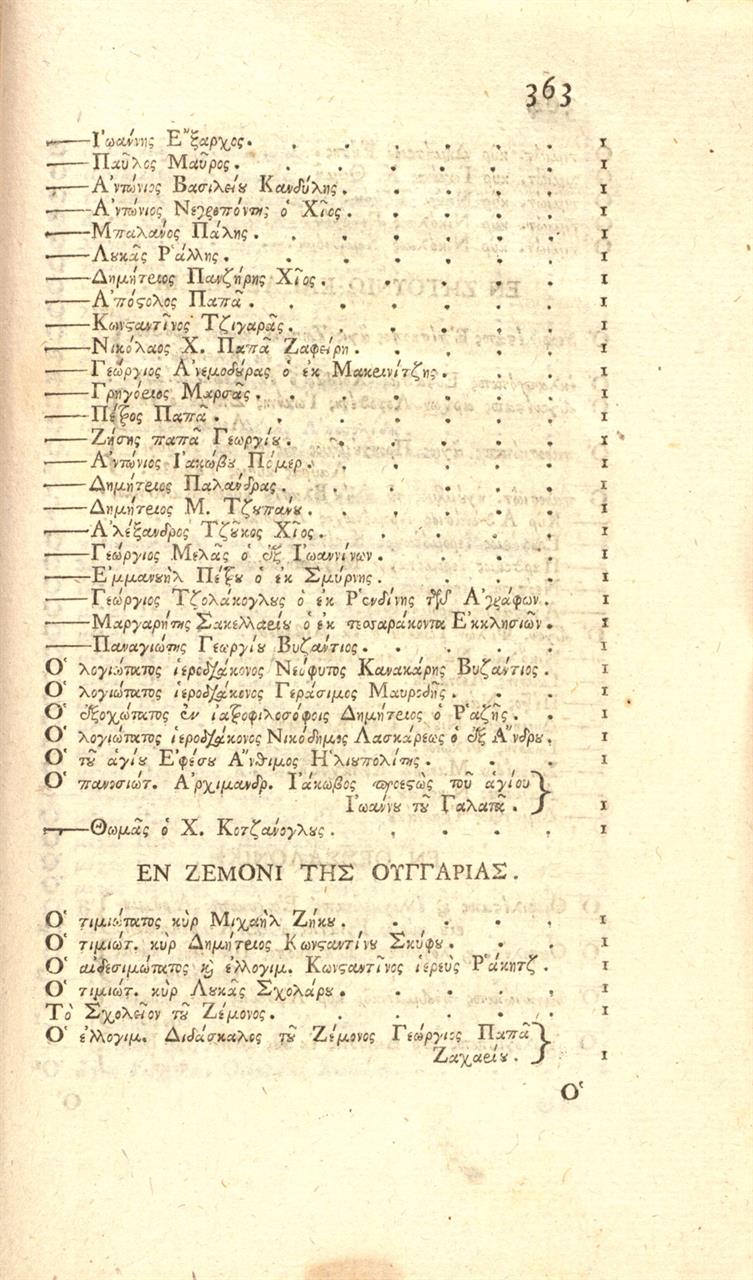 363
——Ἰωάννης Ἔξαρχος. . . . . . . 1
——Παῦλος Μαῦρος. . . . . . . 1
——Ἀντώνιος Βασιλείου Κανδύλης. . . . . 1
——Ἀντώνιος Νεγρεπόντης ὁ Χῖος. . . . . 1
——Μπαλάνος Πάλης. . . . . . . 1
——Λουκᾶς Ῥάλλης. . . . . . . 1
——Δημήτριος Πανζήρης Χῖος. . . . . . 1
——Ἀπόστολος Παπᾶ. . . . . . . 1
——Κωνσταντῖνος Τζιγαρᾶς. . . . . . 1
——Νικόλαος Χ. Παπᾶ Ζαφείρη. . . . . 1
——Γεώργιος Ἀνεμοδουρᾶς ὁ ἐκ Μακρινίτζης. . . 1
——Γρηγόριος Μαρσᾶς. . . . . . . 1
——Πέτρος Παπᾶ. . . . . . . 1
——Ζήσης παπᾶ Γεωργίου. . . . . . 1
——Ἀντώνιος Ἰακώβου Πόμερ. . . . . . 1
——Δημήτριος Παλάνδρας. . . . . . 1
——Δημήτριος Μ. Τζουπάνου. . . . . . 1
——Ἀλέξανδρος Τζοῦκος Χῖος. . . . . 1
——Γεώργιος Μελᾶς ὁ ἐξ Ἰωαννίνων. . . . 1
——Ἐμμανουὴλ Πέτρου ὁ ἐκ Σμύρνης. . . . 1
——Γεώργιος Τζολάκογλους ὁ ἐκ Ῥενδίνης τῶν Ἀγράφων. 1
——Μαργαρίτης Σακελλαρίου ὁ ἐκ τεσσαράκοντα Ἐκκλησιῶν. 1
——Παναγιώτης Γεωργίου Βυζάντιος. . . . . 1
Ὁ λογιώτατος ἱεροδιάκονος Νεόφυτος Κανακάρης Βυζάντιος. 1
Ὁ λογιώτατος ἱεροδιάκονος Γεράσιμος Μαυροδῆς. . . 1
Ὁ ἐξοχώτατος ἐν ἰατροφιλοσόφοις Δημήτριος ὁ Ῥαζῆς. . 1
Ὁ λογιώτατος ἱεροδιάκονος Νικόδημος Λασκάρεως ὁ ἐξ Ἄνδρου. 1
Ὁ τοῦ ἁγίου Ἐφέσου Ἄνθιμος Ἡλιουπολίτης. . . . 1
Ὁ πανοσιώτ. Ἀρχιμανδρ. Ἰάκωβος προεστὼς τοῦ ἁγίου
Ἰωάννου τοῦ Γαλατᾶ. } 1
——Θωμᾶς ὁ Χ. Κοτζάνογλους. . . . . 1
ΕΝ ΖΕΜΟΝΙ ΤΗΣ ΟΥΓΓΑΡΙΑΣ.
Ὁ τιμιώτατος κὺρ Μιχαὴλ Ζήκου. . . . . 1
Ὁ τιμιώτ. κὺρ Δημήτριος Κωνσταντίνου Σκύφου. . . 1
Ὁ αἰδεσιμώτατος κ̀ ἐλλογιμ. Κωνσταντῖνος ἱερεὺς Ῥάκητζ. 1
Ὁ τιμιώτ. κὺρ Λουκᾶς Σχολάρου. . . . . 1
Τὸ Σχολεῖον τοῦ Ζέμονος. . . . . . 1
Ὁ ἐλλογιμ. Διδάσκαλος τοῦ Ζέμονος Γεώργιος Παπᾶ
Ζαχαρίου. } 1
Ὁ